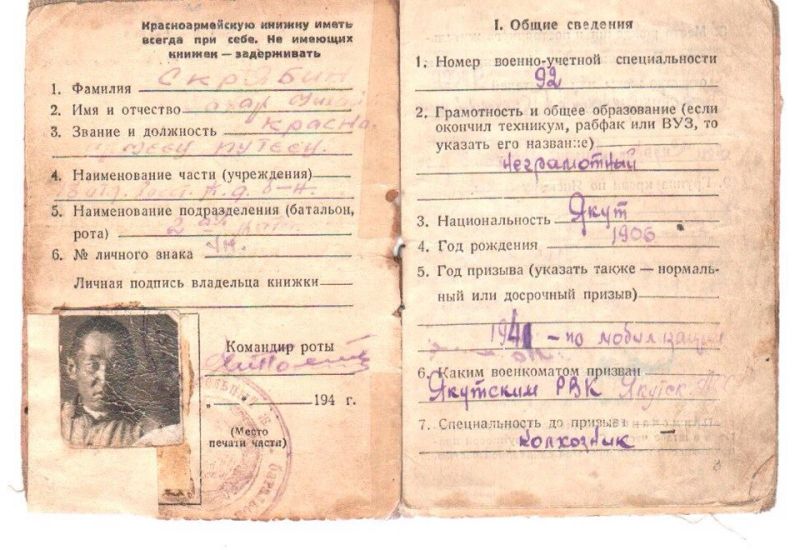 Красноармейскую книжку иметь
всегда при себе. Не имеющих
книжек — задерживать
1. Фамилия Скрябин
2. Имя и отчество
3. Звание и должность Красно
4. Наименование части (учреждения)
5. Наименование подразделения (батальон,
рота) 2
6. № личного знака
Личная подпись владельца книжки
Командир роты
194 г.
(Место
печати части)
I. Общие сведения
1. Номер военно-учетной специальности
92
2. Грамотность и общее образование (если
окончил техникум, рабфак или ВУЗ, то
указать его название)
неграмотный
3. Национальность Якут
4. Год рождения 1906
5. Год призыва (указать также — нормаль-
ный или досрочный призыв)
1941 - по мобилизации
6. Каким военкоматом призван
Якутским РВК Якутск
7. Специальность до призыва
колхозник